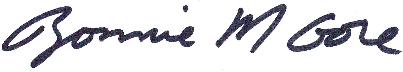 Bonnie M Gore